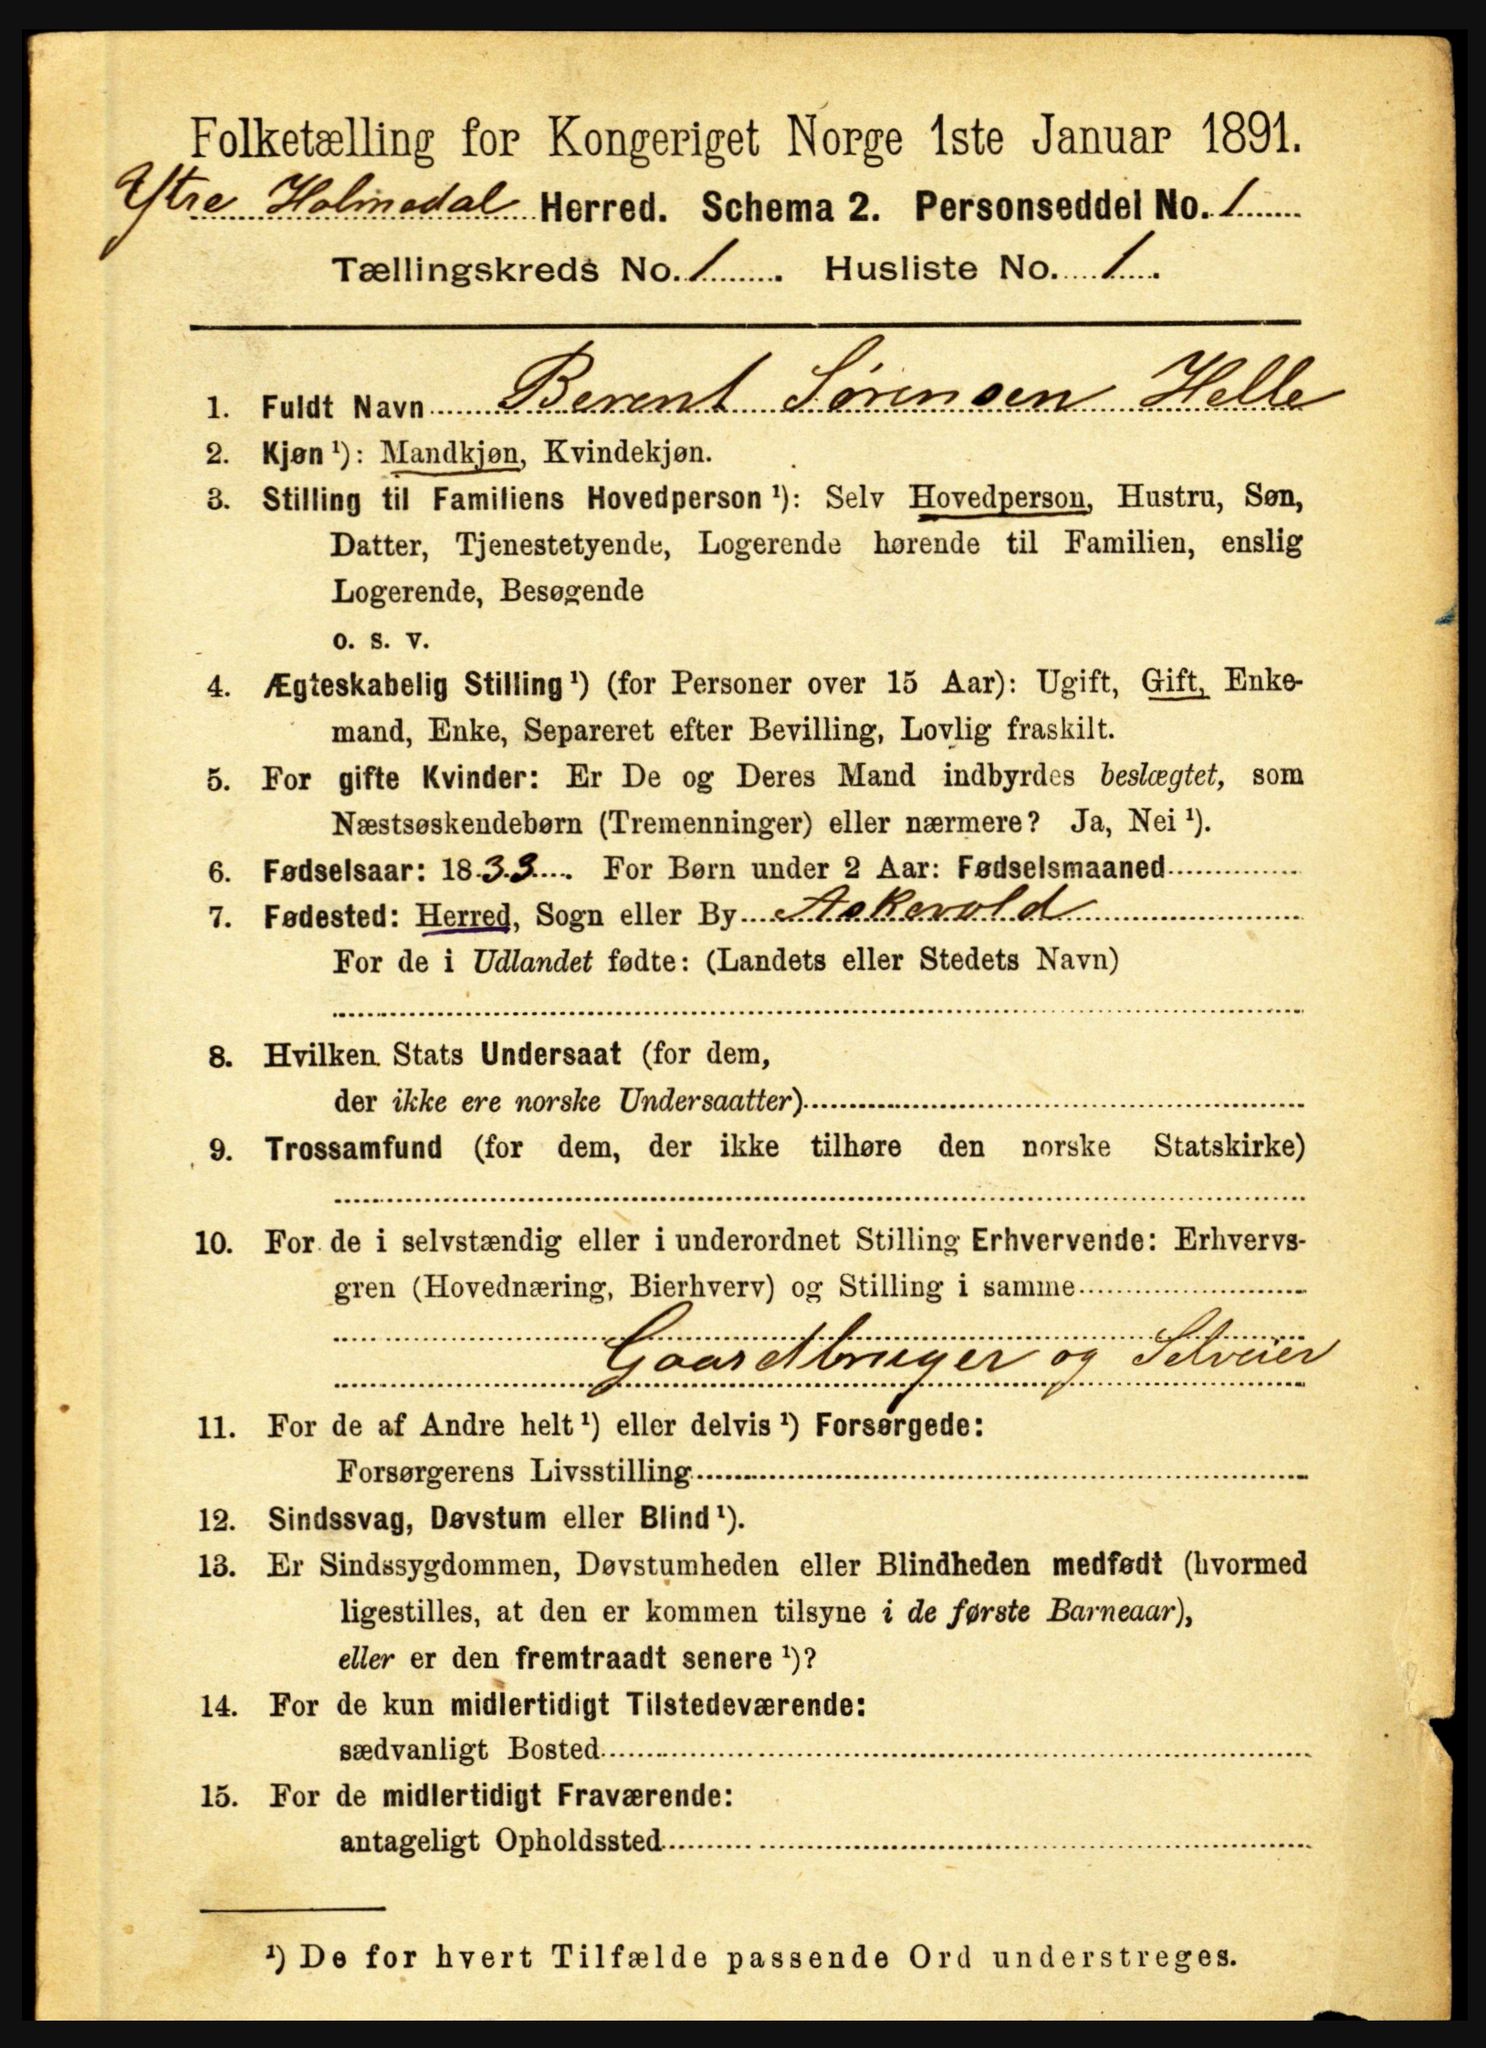 Folketælling for Kongeriget Norge 1ste Januar 1891.
Ytre Holmedal Herred. Schema 2. Personseddel No. 1
Tællingskreds No. 1. Husliste No. 1.
1. Fuldt Navn Berent Sørensen Helle
2. Kjøn ¹): Mandkjøn, Kvindekjøn.
3. Stilling til Familiens Hovedperson ¹): Selv Hovedperson, Hustru, Søn,
Datter, Tjenestetyende, Logerende hørende til Familien, enslig
Logerende, Besøgende
o. s. v.
4. Ægteskabelig Stilling ¹) (for Personer over 15 Aar): Ugift, Gift, Enke-
mand, Enke, Separeret efter Bevilling, Lovlig fraskilt.
5. For gifte Kvinder: Er De og Deres Mand indbyrdes beslægtet, som
Næstsøskendebørn (Tremenninger) eller nærmere? Ja, Nei ¹).
6. Fødselsaar: 1833. For Børn under 2 Aar: Fødselsmaaned
7. Fødested: Herred, Sogn eller By Askevold
For de i Udlandet fødte: (Landets eller Stedets Navn)
8. Hvilken Stats Undersaat (for dem,
der ikke ere norske Undersaatter)
9. Trossamfund (for dem, der ikke tilhøre den norske Statskirke)
10. For de i selvstændig eller i underordnet Stilling Erhvervende: Erhvervs-
gren (Hovednæring, Bierhverv) og Stilling i samme
Gaardbruger og Selveier
11. For de af Andre helt ¹) eller delvis ¹) Forsørgede:
Forsørgerens Livsstilling
12. Sindssvag, Døvstum eller Blind ¹).
13. Er Sindssygdommen, Døvstumheden eller Blindheden medfødt (hvormed
ligestilles, at den er kommen tilsyne i de første Barneaar),
eller er den fremtraadt senere ¹)?
14. For de kun midlertidigt Tilstedeværende:
sædvanligt Bosted
15. For de midlertidigt Fraværende:
antageligt Opholdssted
¹) De for hvert Tilfælde passende Ord understreges.